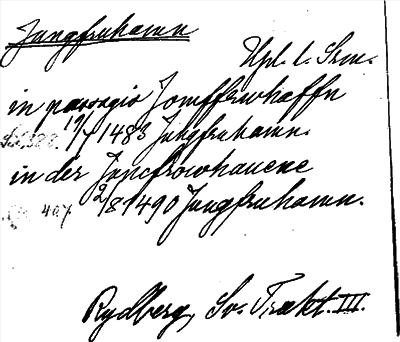 Jungfruhamn
Upl. l. Srm.
in pavorgio Jomffrwhaffn
19/1 1483 Jungfruhamn.
in der Joncfrowhauene
407 2/8 1490 Jungfruhamn.
Rydberg, Sv. Trakt. III.